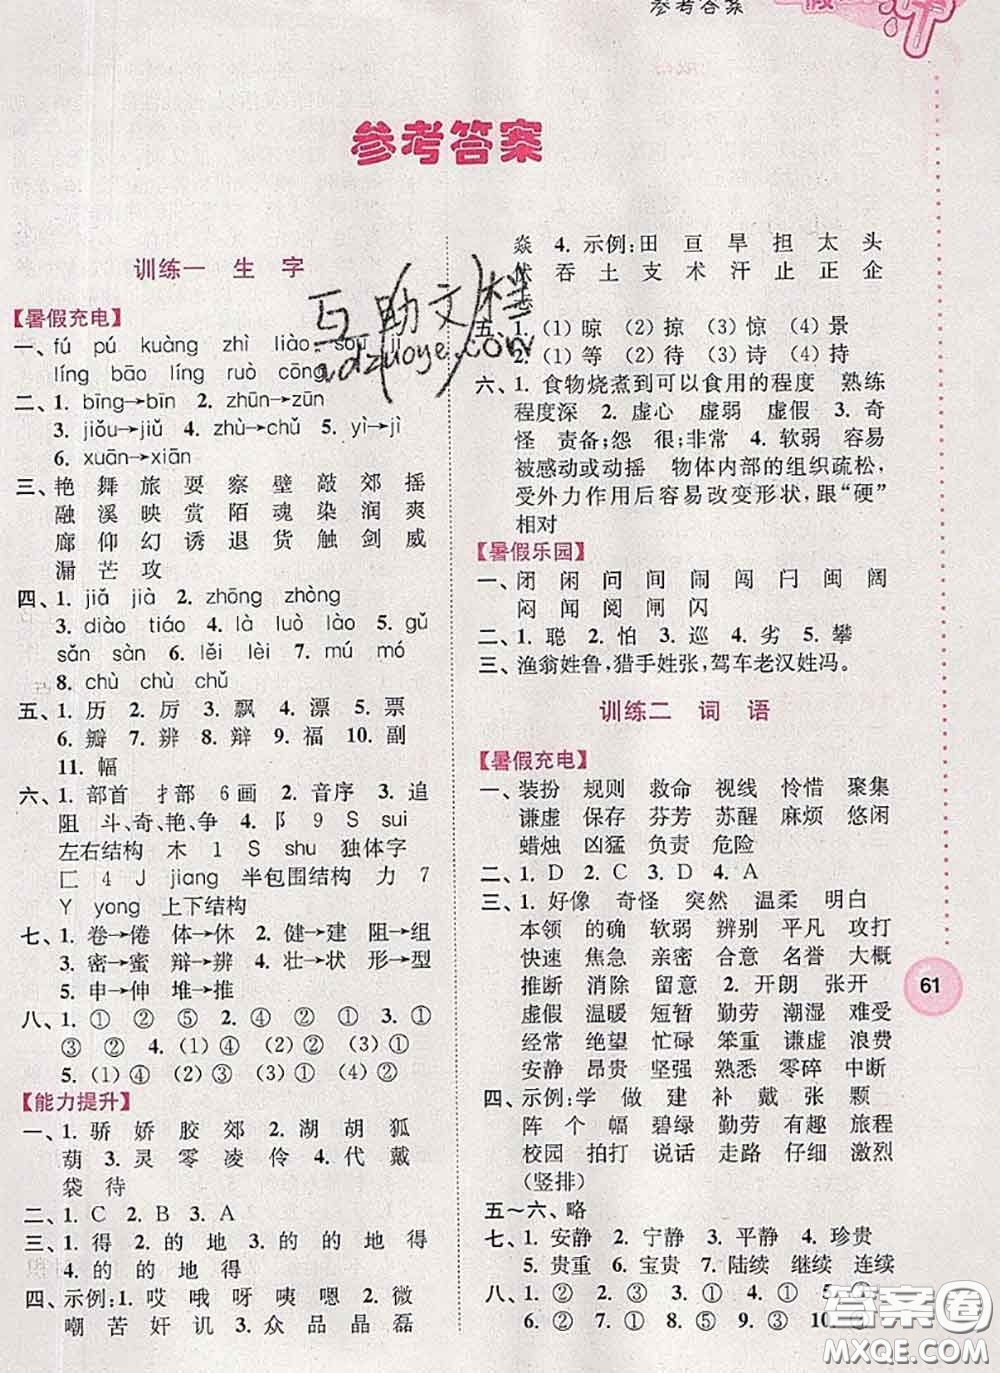 参考答案
参考答案
训练一 生 字
【暑假充电】
一、fú pú kuàng zhì liào sōu jì
líng bāo líng ruò cōng
二、1. bīng→bīn 2. zhūn→zūn
3. jiǒu→jiǔ 4. zhù→chǔ 5. yì→jì
6. xuān→xiān
三、艳 舞 旅 耍 察 壁 敲 郊 摇
融 溪 映 赏 陌 魂 染 润 爽
廊 仰 幻 诱 退 货 触 剑 威
漏 芒 攻
四、1. jiǎ jià 2. zhōng zhòng
3. diào tiáo 4. là luò lào 5. gǔ
sǎn sàn 6. lěi lèi 7. mú mó
8. chù chù chǔ
五、1. 历 2. 厉 3. 飘 4. 漂 5. 票
6. 瓣 7. 辨 8. 辩 9. 福 10. 副
11. 幅
六、1. 部首 扌部 6画 2. 音序 3. 追
阻 斗、奇、艳、争 4. 阝 9 S sui
左右结构 木 1 S shu 独体字
匚 4 J jiang 半包围结构 力 7
Y yong 上下结构
七、1. 卷→倦 体→休 2. 健→建 阻→组
3. 密→蜜 辩→辨 4. 壮→状 形→型
5. 申→伸 堆→推
八、1. ① ② ⑤ 2. ④ ② ① 3. ①
③ ② 4. (1)④ (2)② (3)①
5. (1)④ (2)② (3)① (4)③
【能力提升】
一、1. 骄 娇 胶 郊 2. 湖 胡 狐
葫 3. 灵 零 凌 伶 4. 代 戴
袋 待
二、1. C 2. B 3. A
三、1. 得 2. 的 地 3. 的 的 地 得
4. 的 的 地 得
四、示例:1. 哎 哦 呀 咦 嗯 2. 微
嘲 苦 奸 讥 3. 众 品 晶 磊
焱 4. 示例:田 亘 旱 担 太 头
伏 吞 土 支 术 汗 止 正 企
志
五、1. (1)晾 (2)掠 (3)惊 (4)景
2. (1)等 (2)待 (3)诗 (4)持
六、1. 食物烧煮到可以食用的程度 熟练
程度深 2. 虚心 虚弱 虚假 3. 奇
怪 责备;怨 很;非常 4. 软弱 容易
被感动或动摇 物体内部的组织疏松,
受外力作用后容易改变形状,跟“硬”
相对
【暑假乐园】
一、闭 闲 问 间 闹 闯 闩 闽 阔
闷 闻 阅 闸 闪
二、1. 聪 2. 怕 3. 巡 4. 劣 5. 攀
三、渔翁姓鲁,猎手姓张,驾车老汉姓冯。
训练二 词 语
【暑假充电】
一、装扮 规则 救命 视线 怜惜 聚集
谦虚 保存 芬芳 苏醒 麻烦 悠闲
蜡烛 凶猛 负责 危险
二、1. D 2. C 3. D 4. A
三、1. 好像 奇怪 突然 温柔 明白
本领 的确 软弱 辨别 平凡 攻打
快速 焦急 亲密 合意 名誉 大概
推断 消除 留意 2. 开朗 张开
虚假 温暖 短暂 勤劳 潮湿 难受
经常 绝望 忙碌 笨重 谦虚 浪费
安静 昂贵 坚强 熟悉 零碎 中断
四、示例:学 做 建 补 戴 张 颗
阵 个 幅 碧绿 勤劳 有趣 旅程
校园 拍打 说话 走路 仔细 激烈
(竖排)
五~六、略
七、1. 安静 2. 宁静 3. 平静 4. 珍贵
5. 贵重 6. 宝贵 7. 陆续 继续 连续
八、1. ② 2. ③ 3. ① 4. ① 5. ①
6. ② 7. ① 8. ⑤ 9. ③ 10.
61
互助文档
adzuoye.com
答案圈
MXQE.COM